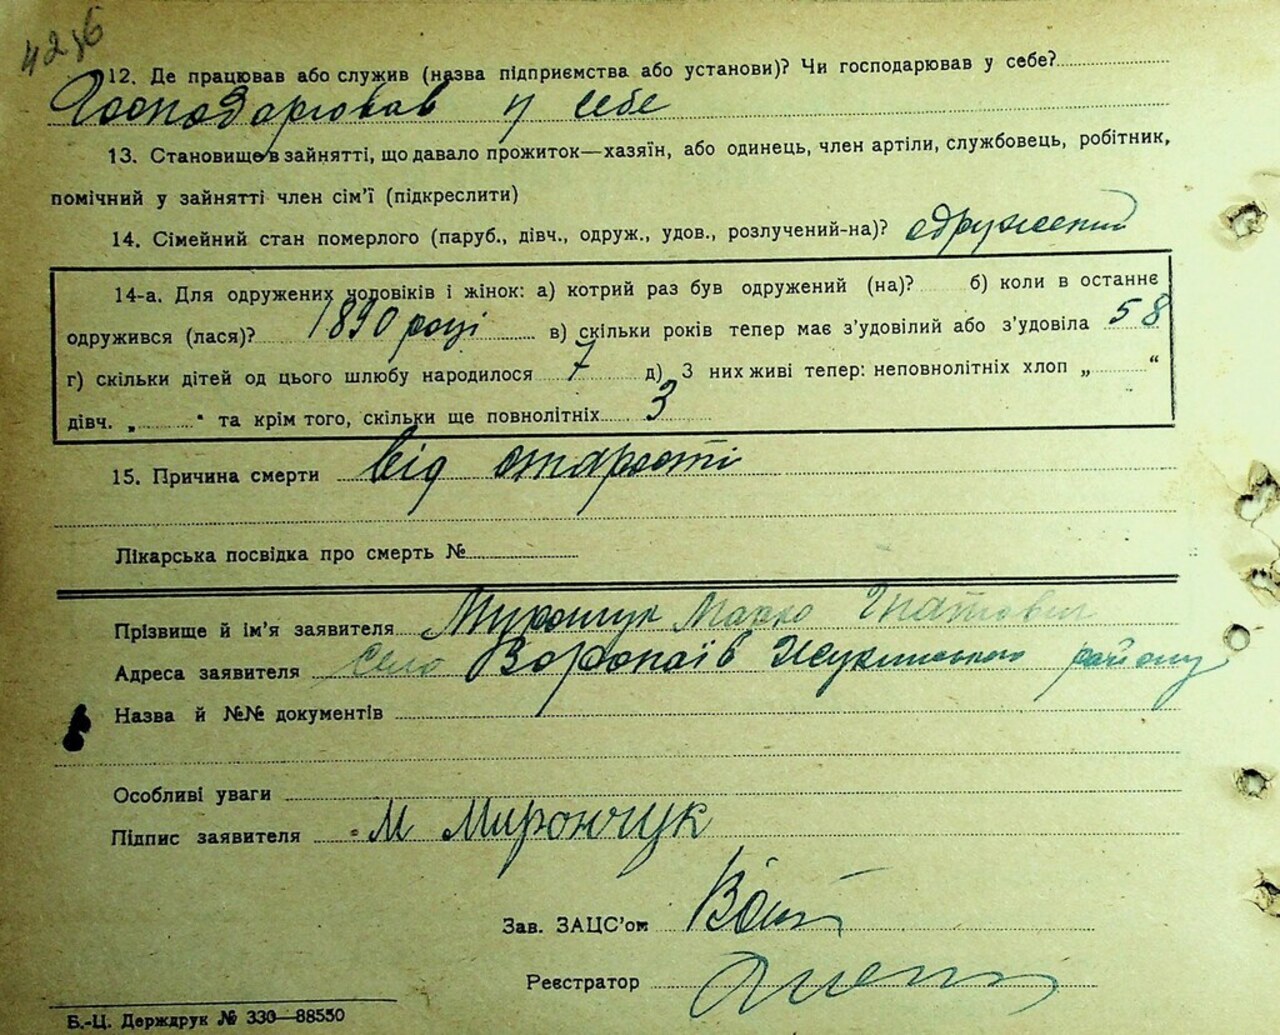 4256
12. Де працював або служив (назва підприємства або установи)? Чи господарював у себе?
Господарював у себе
13. Становище в зайнятті, що давало прожиток—хазяїн, або одинець, член артіли, службовець, робітник,
помічний у зайнятті член сім'ї (підкреслити)
14. Сімейний стан померлого (паруб., дівч., одруж., удов., розлучений-на)? одружений
14-а. Для одружених чоловіків і жінок: а) котрий раз був одружений (на)? б) коли в останнє
одружився (лася)? 1890 році в) скільки років тепер має з'удовілий або з'удовіла 58
г) скільки дітей од цього шлюбу народилося 7 д) З них живі тепер: неповнолітніх хлоп „ “
дівч. „ “ та крім того, скільки ще повнолітніх 3
15. Причина смерти від старости
Лікарська посвідка про смерть №
Прізвище й ім'я заявителя Мирончук Марко Гнатович
Адреса заявителя село Воропаїв Жукинського району
Назва й №№ документів
Особливі уваги
Підпис заявителя М Мирончук
Зав. ЗАЦС'ом
Реєстратор
Б.-Ц. Держдрук № 330—88550